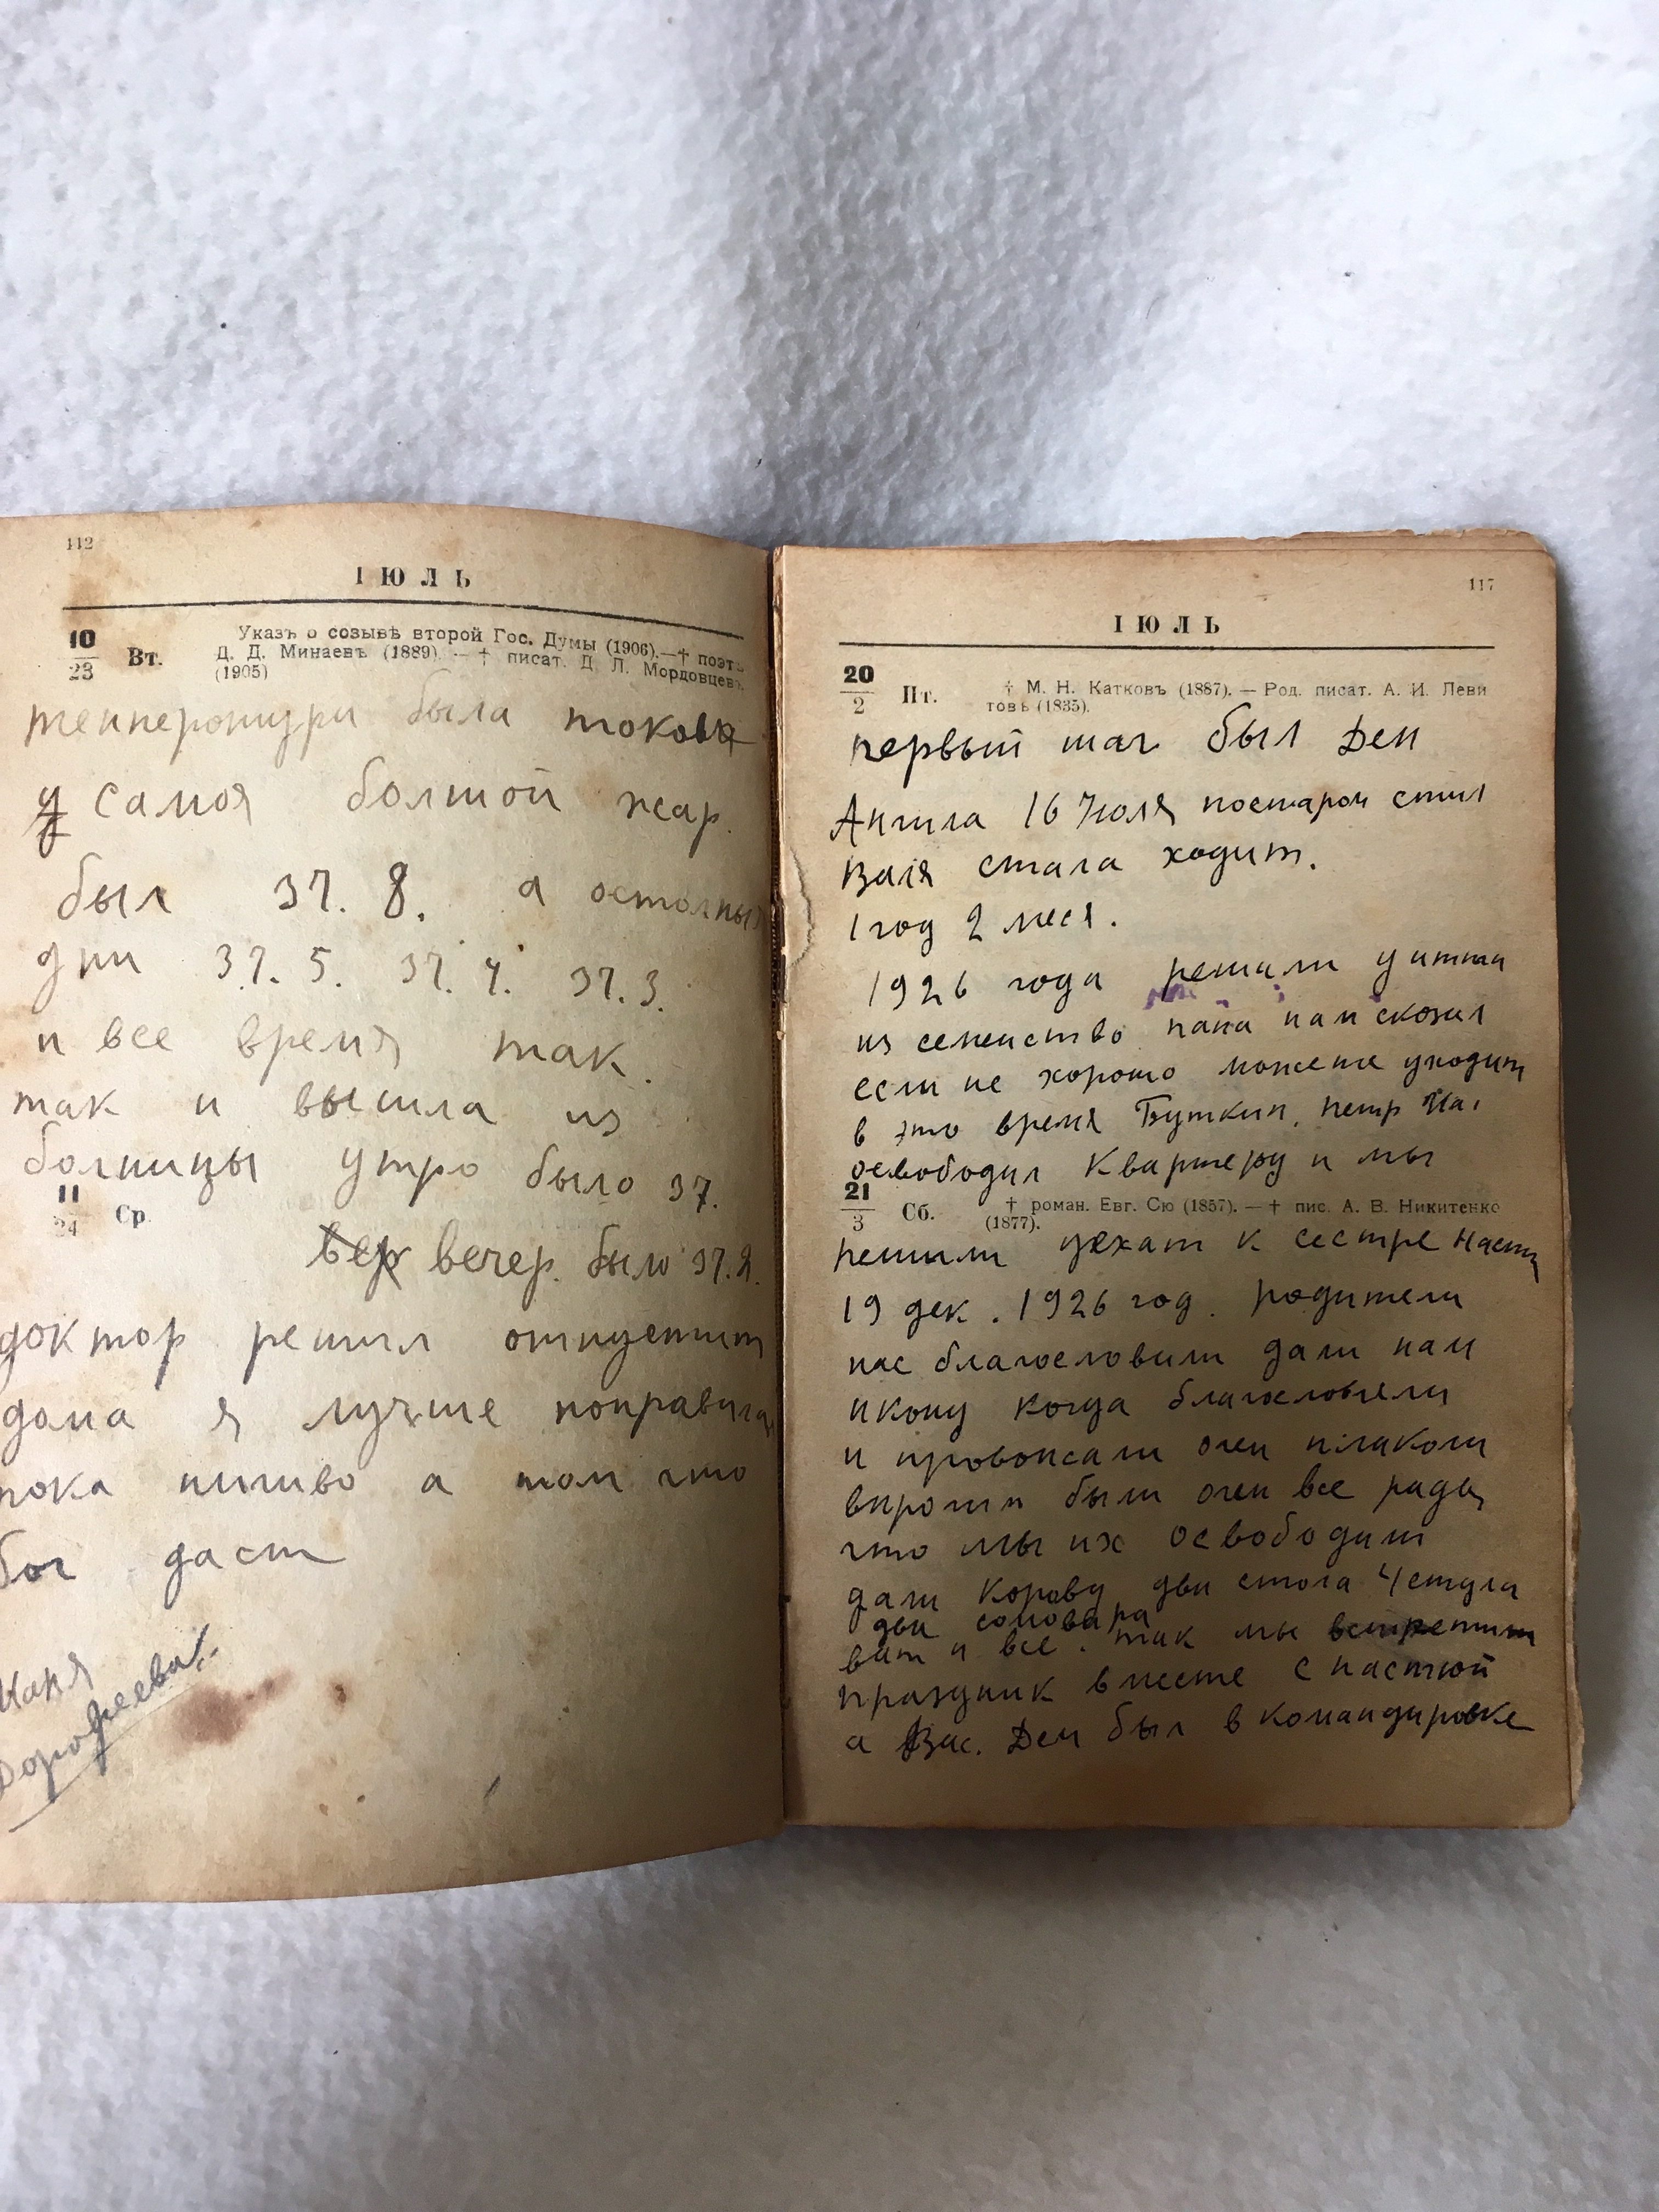 112
ІЮЛЬ
10
23
Вт.
Указъ о созывѣ второй Гос. Думы (1906).—† поэтъ
Д. Д. Минаевъ (1889). — † писат. Д. Л. Мордовцевъ
(1905)
темперотури была токова
у самоя болшой жар.
был 37. 8. а осталныя
дни 37. 5. 37. 4. 37. 3.
и все время так.
так и вышла из
болницы утро было 37.
11
24
Ср
вер вечер. было 37. 2.
доктор решил отпустит
дома я лучше поправилас
пока ничиво а там что
бог даст
Дорофеева
117
ІЮЛЬ
20
2
Пт.
† М. Н. Катковъ (1887). — Род. писат. А. И. Леви
товъ (1835).
первый шаг был Ден
Ангила 16 Июля постаром стил
Валя стала ходит.
1 год 2 меся.
1926 года решили уитти
из семейство папа нам сказал
если не хорошо можете уходит
в это время Буткин. петр
освободил квартеру и мы
21
3
Сб.
† роман. Евг. Сю (1857). — † пис. А. В. Никитенко
(1877).
решили уехат к сестре Насти
19 дек. 1926 год. родители
нас благословили дали нам
икону когда благословлели
и провожали очен плакали
впрочи были очен все рады
что мы их освободили
дали корову два стола 4 стула
два самовара
ват и все. так мы встретили
праздник вместе с настюй
а Вас. Дем был в командировке